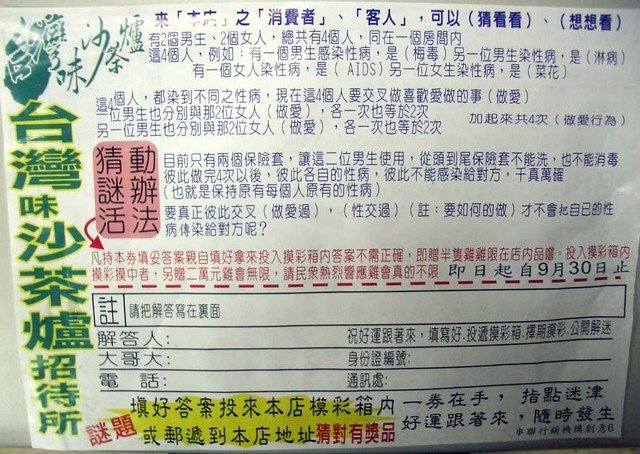 台灣味沙茶爐
來「本店」之「消費者」、「客人」，可以（猜看看）、（想想看）
有2個男生、2個女人，總共有4個人，同在一個房間內
這4個人，例如：有一個男生感染性病，是（梅毒）另一位男生染性病，是（淋病）
有一個女人染性病，是（AIDS）另一位女生染性病，是（菜花）
這4個人，都染到不同之性病，現在這4個人要交叉做喜歡愛做的事（做愛）
一位男生也分別與那2位女人（做愛），各一次也等於2次
另一位男生也分別與那2位女人（做愛），各一次也等於2次
加起來共4次（做愛行為）
台灣味沙茶爐招待所
猜謎活動辦法
目前只有兩個保險套，讓這二位男生使用，從頭到尾保險套不能洗，也不能消毒
彼此做完4次以後，彼此各自的性病，彼此不能感染給對方，千真萬確
（也就是保持原有每個人原有的性病）
要真正彼此交叉（做愛過），（性交過）（註：要如何的做）才不會把自已的性
病傳染給對方呢？
凡持本券填妥答案親自填好拿來投入摸彩箱內答案不需正確，即贈半隻雞雞限在店內品嚐。投入摸彩箱內
摸彩摸中者，另贈二萬元雞會無限，請民衆熱烈響應雞會真的不限 即日起自9月30日止
註 請把解答寫在裏面
解答人： 祝好運跟著來，填寫好．投遞摸彩箱．擇期摸彩．公開解迷
大哥大： 身份證編號：
電話： 通訊處：
謎題
填好答案投來本店模彩箱內
或郵遞到本店地址猜對有獎品
一券在手，指點迷津
好運跟著來，隨時發生
串聯行銷機構創意6